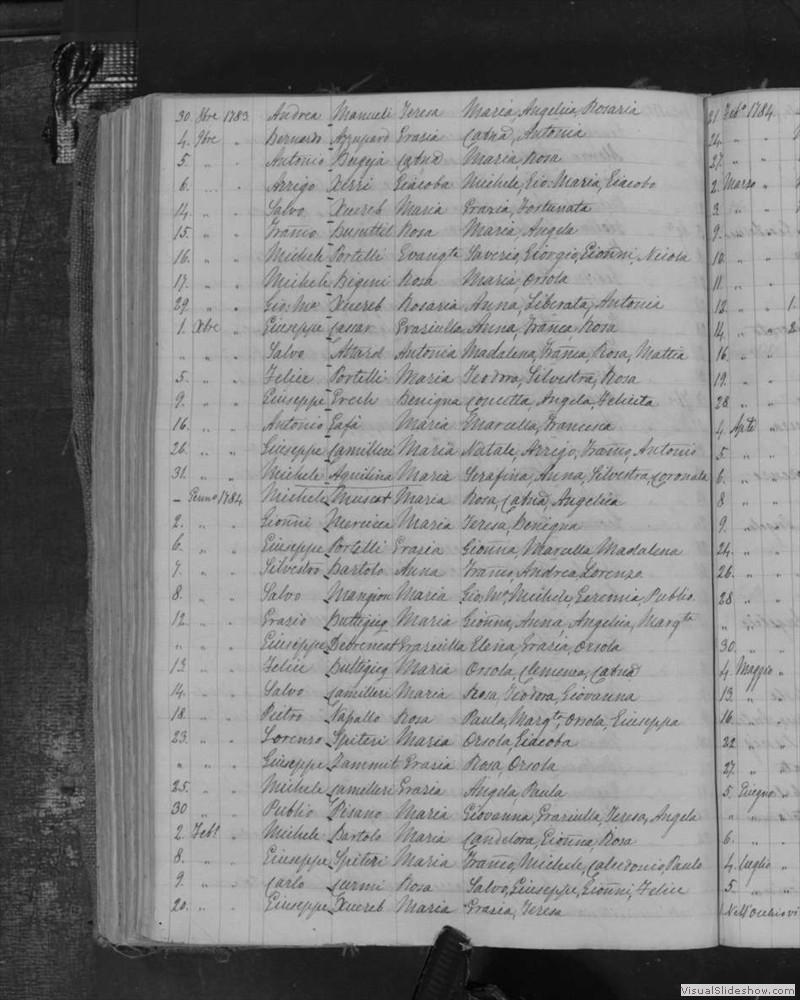 30. 8bre 1783. Andrea Manueli Teresa Maria, Angelica, Rosaria
4. 9bre " Bernardo Azzupard Grazia Catna, Antonia
5 " " Antonio Bugeja Catna Maria Rosa
6. ... . Arrigo Xerri Giacoba Michele, Gio: Maria, Giacobo
14. " " Salvo Xuereb Maria Grazia, Fortunata
15. " " Franco Busuttil Rosa Maria Angela
16. " " Michele Portelli Evangta Saverio, Giorgio, Gionni, Nicola
17. " " Michele Bigeni Rosa Maria, Orsola
29. " " Gio: Ma Xuereb Rosaria Anna, Liberata, Antonia
1. Xbre " Giuseppe Cassar Graziulla Anna, Franca, Rosa
" " " Salvo Attard Antonia Madalena, Franca, Rosa, Mattia
5. " " Felice Portelli Maria Teodora, Silvestra, Rosa
9. " " Giuseppe Grech Benigna Concetta, Angela, Felicita
16. " " Antonio Gafà Maria Marcella, Francesca
26. " " Giuseppe Camilleri Maria Natale, Arrigo, Franco, Antonio
31. " " Michele Aquilina Maria Serafina, Anna, Silvestra, Coronata
– Genno 1784 Michele Muscat Maria Rosa, Catna, Angelica
2. " " Gionni Mercieca Maria Teresa, Benigna
6. " " Giuseppe Portelli Grazia Gionna, Marcella, Madalena
7. " " Silvestro Bartolo Anna Franco, Andrea, Lorenzo
8. " " Salvo Mangion Maria Gio, Ma, Michele, Geremia, Publio
12. " " Grazio Buttigieg Maria Gionna, Anna, Angelica, Margta
" " " Giuseppe Debrencat Graziulla Elena, Grazia, Orsola
13 " " Felice Buttigieg Maria Orsola, Clemenza, Catna
14. " " Salvo Camilleri Maria Rosa, Teodora, Giovanna
18. " " Pietro Napallo Rosa Paula, Margta, Orsola, Giuseppa
23. " " Lorenzo Spiteri Maria Orsola, Giacoba
" " " Giuseppe Zammit Grazia Rosa, Orsola
25. " " Michele Camelleri Grazia Angela, Paula
30 " " Publio Pisano Maria Giovanna, Graziulla, Teresa, Angela
2. Febb. " Michele Bartolo Maria Candelora, Gionna, Rosa
8. " " Giuseppe Spiteri Maria Franco, Michele, Calcidonio, Paulo
9. " " Carlo Curmi Rosa Salvo, Giuseppe, Gionni, Felice
20. " " Giuseppe Xuereb Maria Grazia, Teresa
21. Febo 1784
24. " "
27. " "
2. Marzo "
3. " "
9. " "
10. " "
11. " "
12. " " 1.
14. " " 2
16. " "
19. " "
28. " "
4 Aple "
5. " "
6. " "
8 " "
9. " "
24. " "
26. " "
28. " "
" " "
30. " "
4. Maggio "
13. " "
16. " "
22 " "
27. " "
5. Giugno "
" " "
6. " "
4. Luglio "
5. " "
VisualSlideshow.com